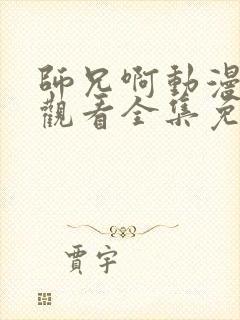 師兄啊動漫
觀看全集免
賈宇